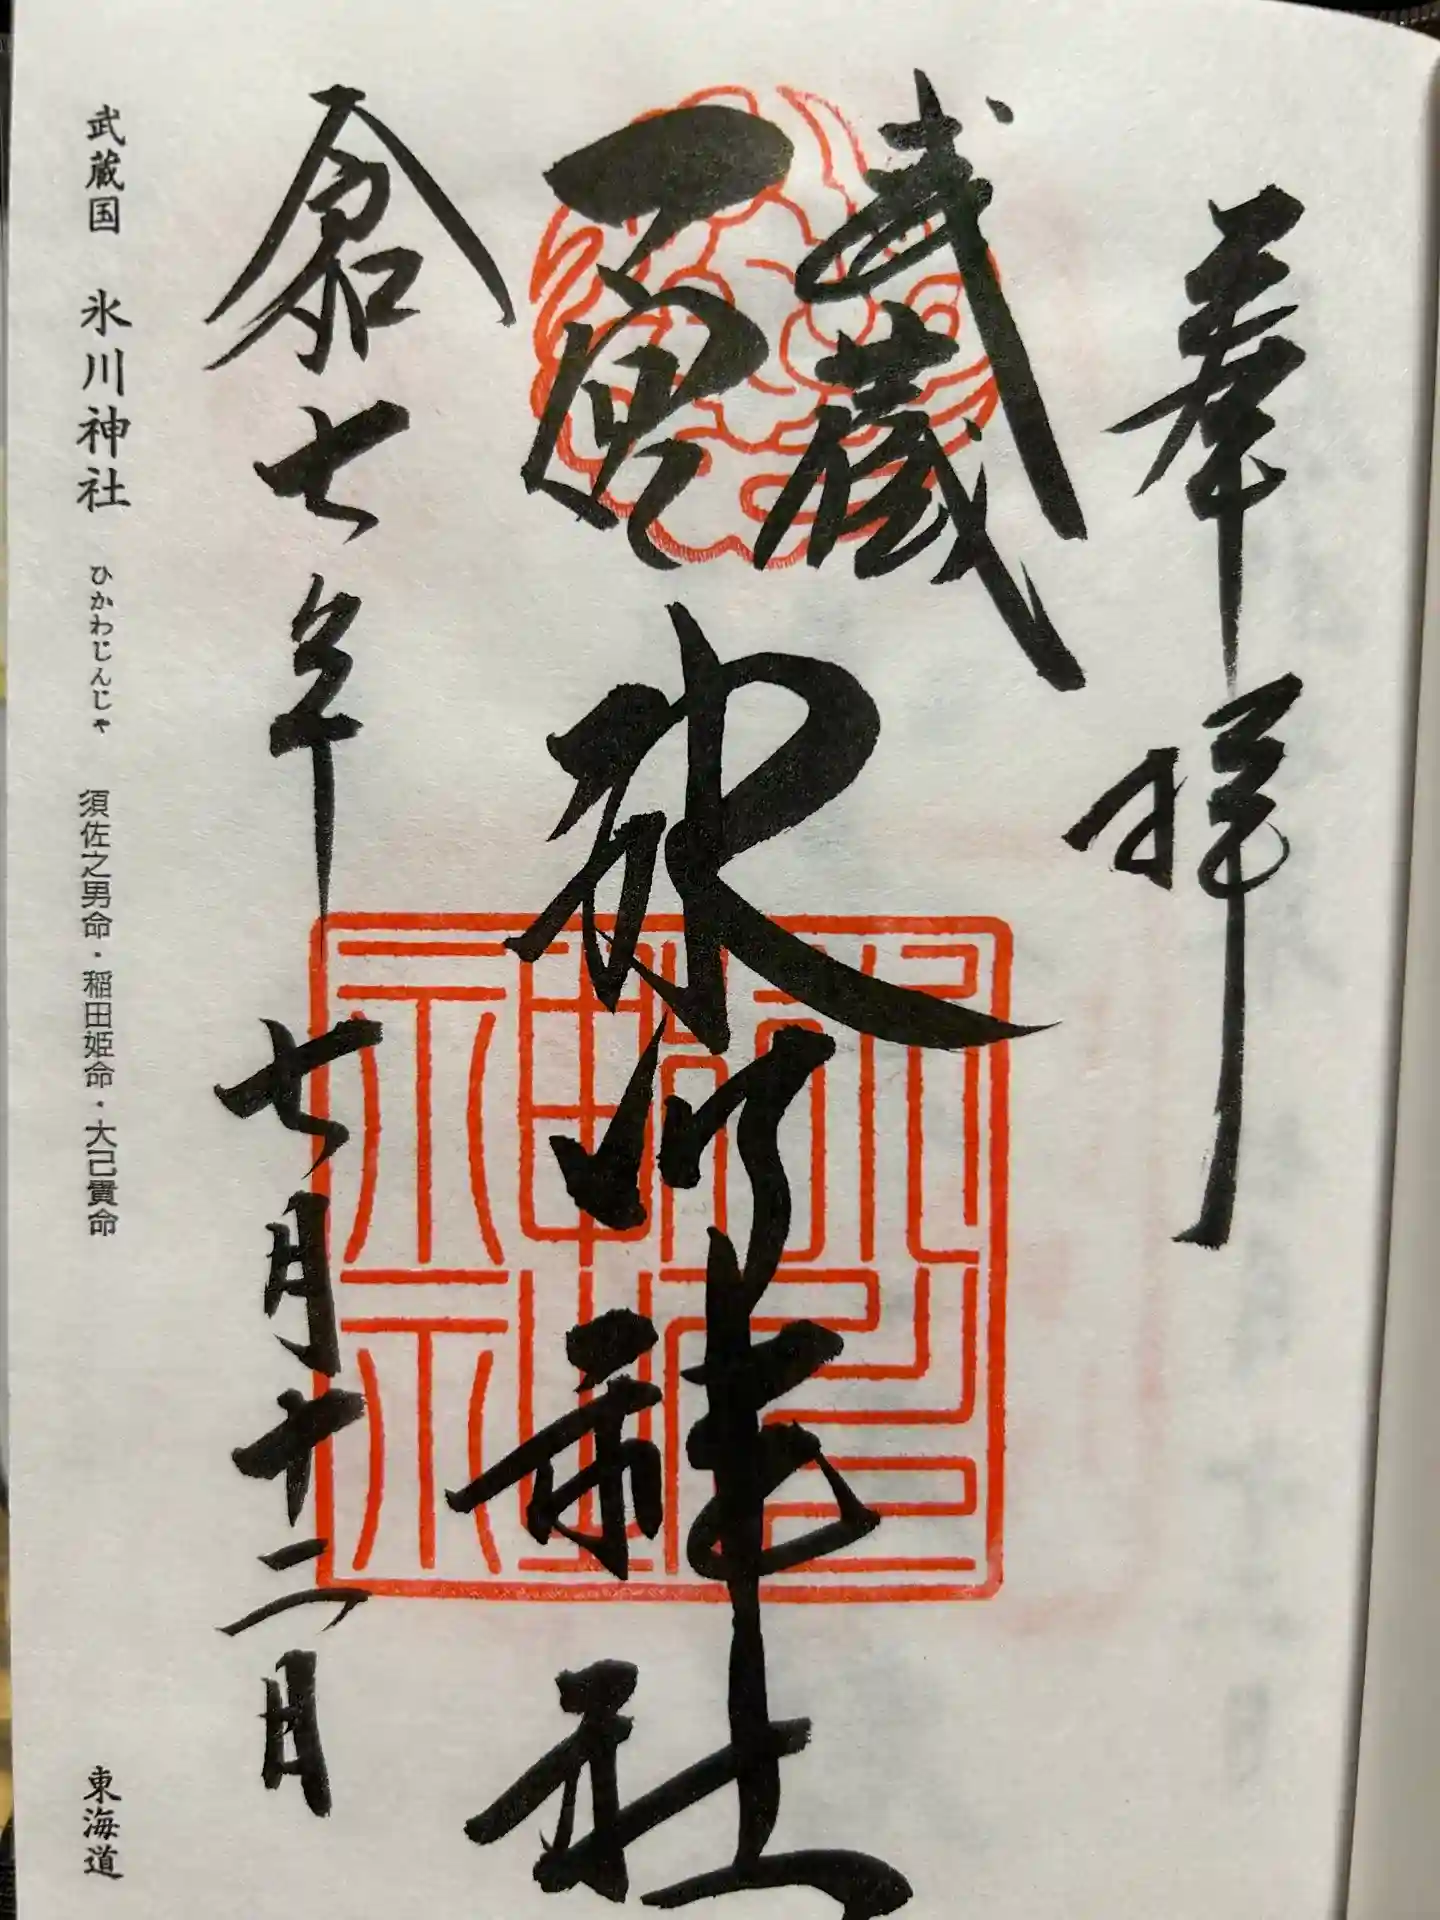 奉拝
武蔵
一宮
氷川神社
令和七年七月十二日
武蔵国 氷川神社 ひかわじんじゃ 須佐之男命・稲田姫命・大己貴命 東海道